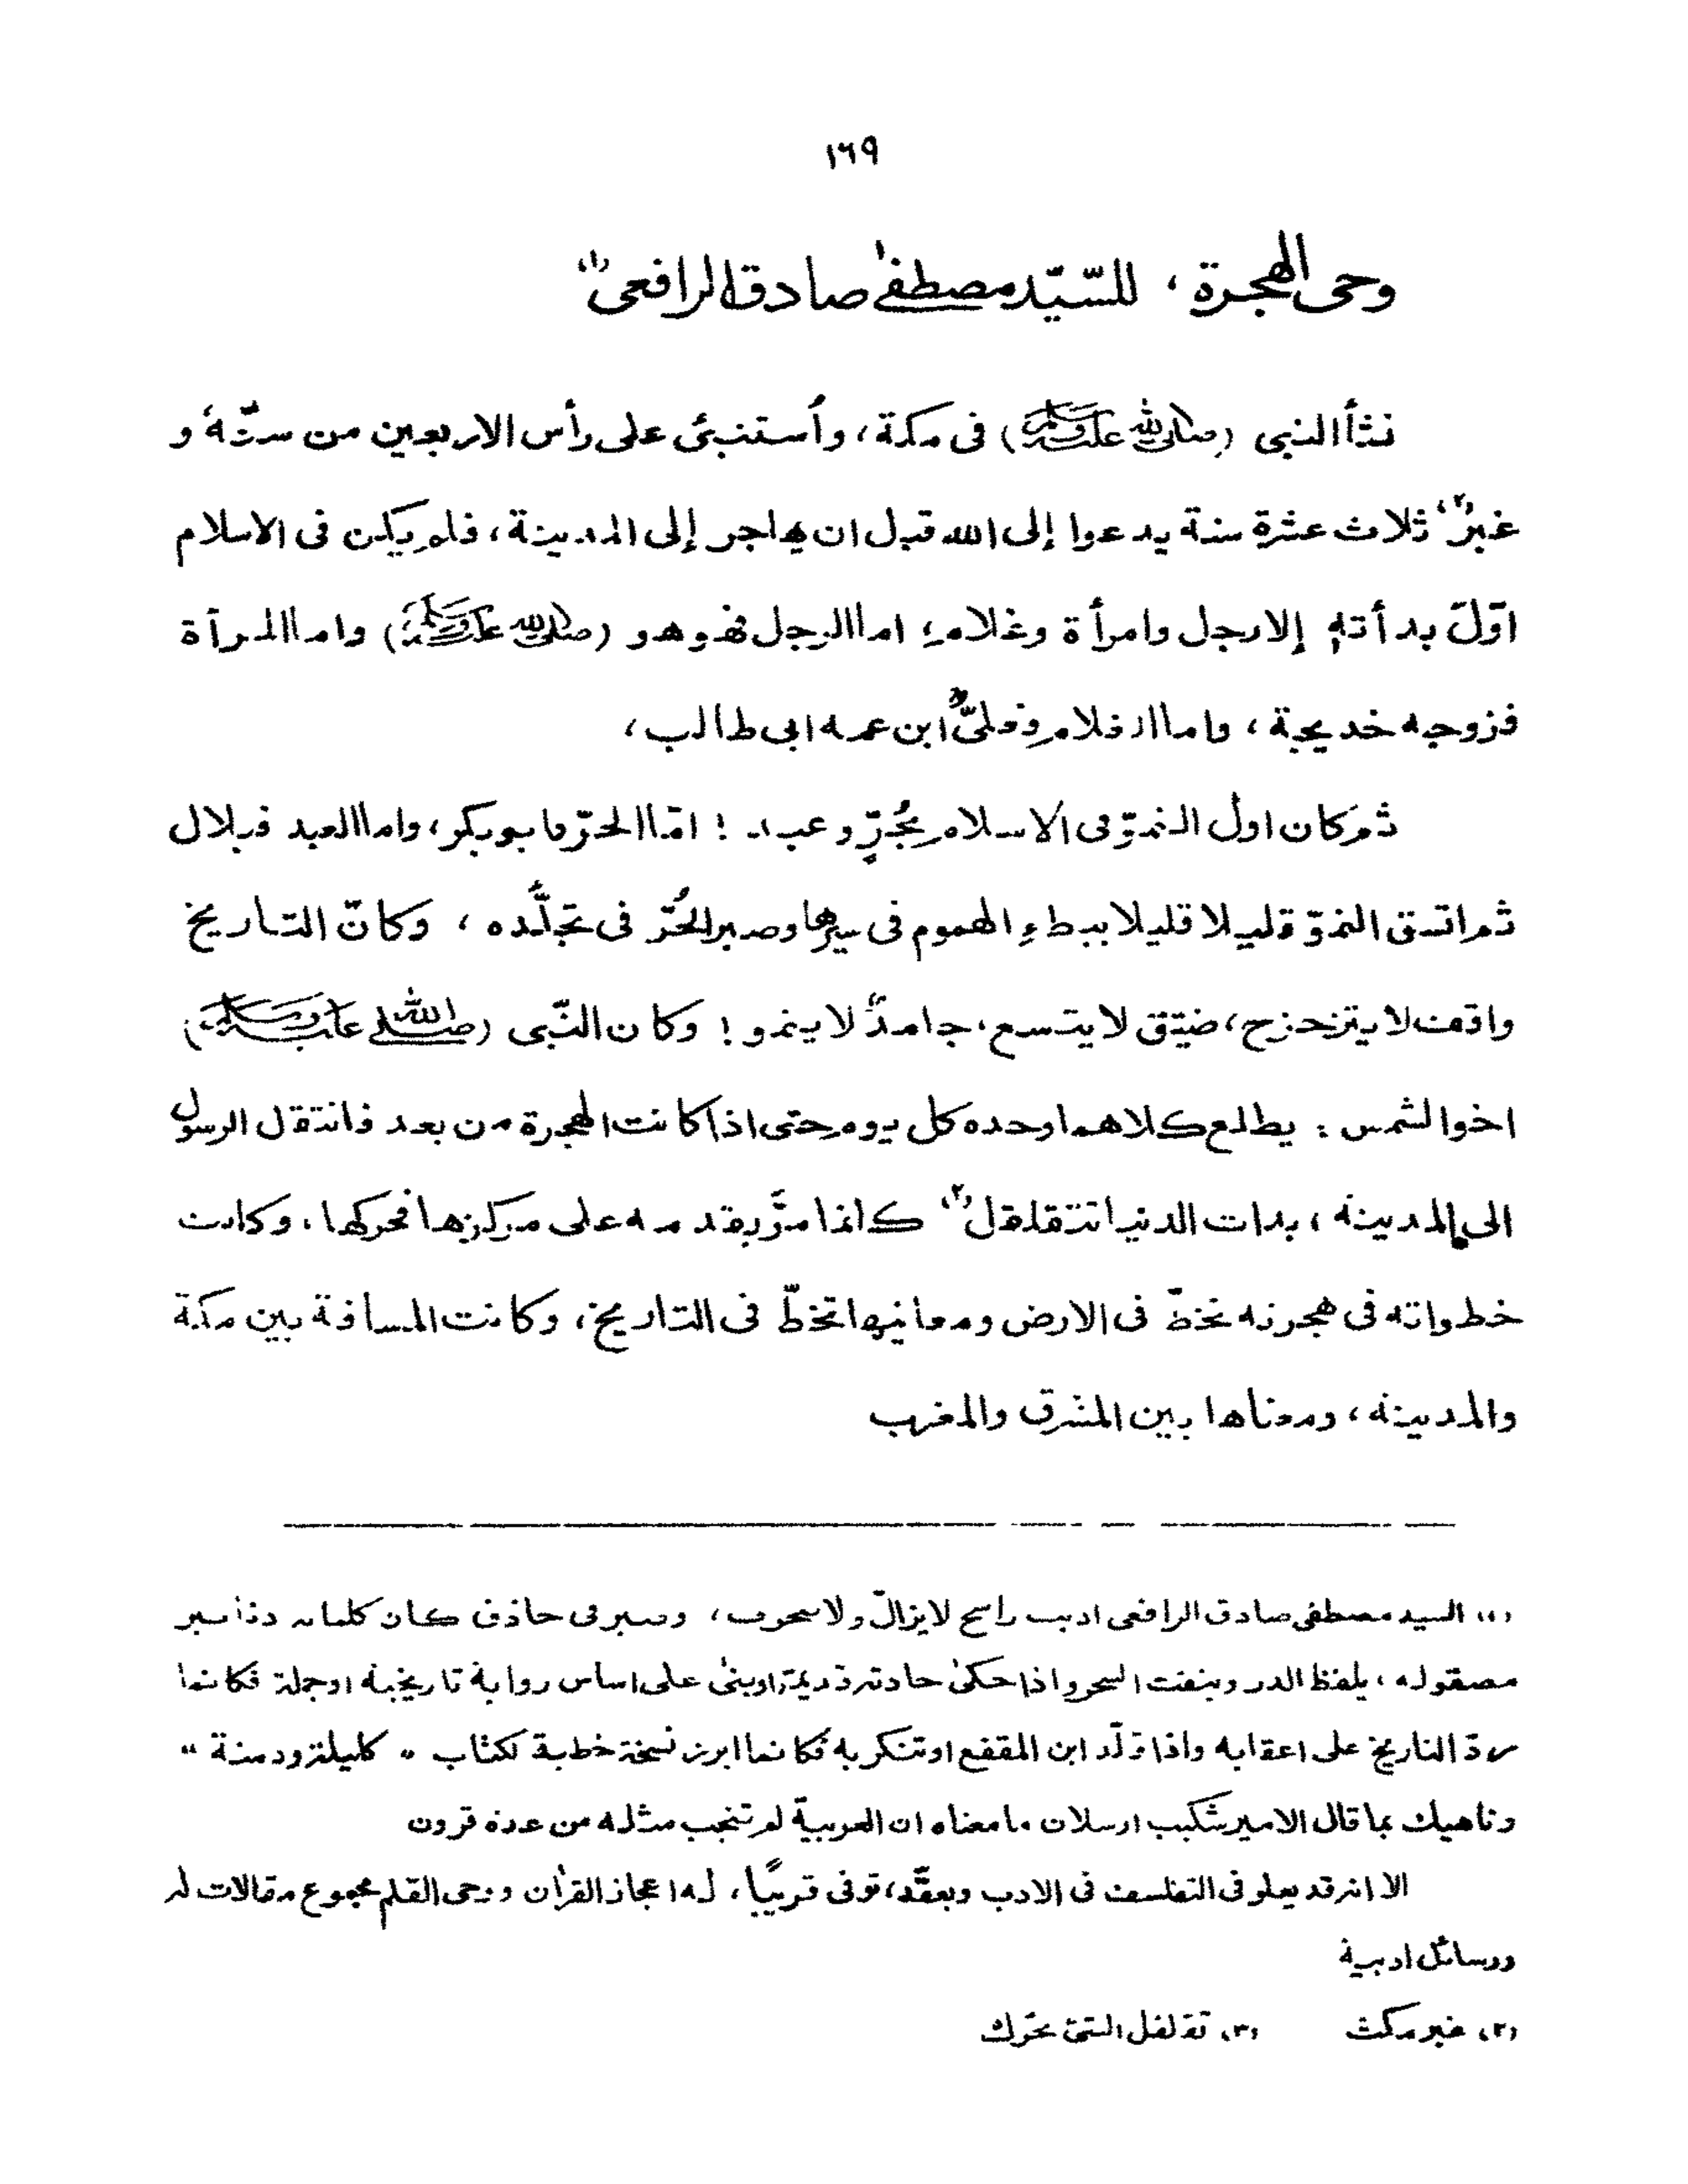 ١٦٩
وحى الهجرة، للسّيّد مصطفىٰ صادق الرافعى (١)
نشأ النبى (صلى الله عليه وسلم) فى مكة، وأستنبئ على رأس الاربعين من سنّه و
غبر (٢) ثلاث عشرة سنة يدعوا إلى الله قبل ان يهاجر إلى المدينة، فلم يكن فى الاسلام
اوّل بدأته إلا رجل وامرأة وغلام؛ اما الرجل فهو هو (صلى الله عليه وسلم) واما المرآة
فزوجه خديجة، واما الغلام فعلىّ ابن عمه ابى طالب،
ثم كان اول النموّ فى الاسلام بحُرٍّ وعبد ! امّا الحرّ فابوبكر، واما العبد فبلال
ثم اتسق النموّ قليلا قليلا ببطءِ الهموم فى سيرها وصبر الحُرّ فى تجلّده، وكانّ التاريخ
واقف لا يتزحزح، ضيّق لا يتسع، جامدٌ لا ينمو ! وكان النّبى (صلى الله عليه وسلم)
اخوا لشمس : يطلع كلاهما وحده كل يوم حتى اذا كانت الهجرة من بعد فانتقل الرسول
الى المدينه، بدات الدنيا تتقلقل (٢) كانما مرّ بقدمه على مركزها فحركها، وكانت
خطواته فى هجرته تخطّ فى الارض ومعانيها تخطّ فى التاريخ، وكانت المسافة بين مكة
والمدينه، ومعناها بين المشرق والمغرب
(١) السيد مصطفى صادق الرافعى اديب راسخ لا يزالّ ولا كان كلماته
مصقوله، يلفظ الدر وينفث السحر واذا حكىٰ حادثة قديمة اوبنىٰ على اساس رواية تاريخية اوجملة فكانما
ردّ التاريخ على اعقابه واذا قلّد ابن المقفع اوتنكر به فكانما ابرز نسخة خطية لكتاب " كليلة ودمنة "
وناهيك بما قال الامير شكيب ارسلان ما معناه ان العربيّة لم تنجب مثله من عدة قرون
الا انه قد يعلو فى التفلسف فى الادب وبعقّد، توفى قريبًا، له اعجاز القرآن ووحى القلم مجموع مقالات له
ورسائل ادبية
(٢) غبر مكث (٣) تقلقل الشئ تحرّك